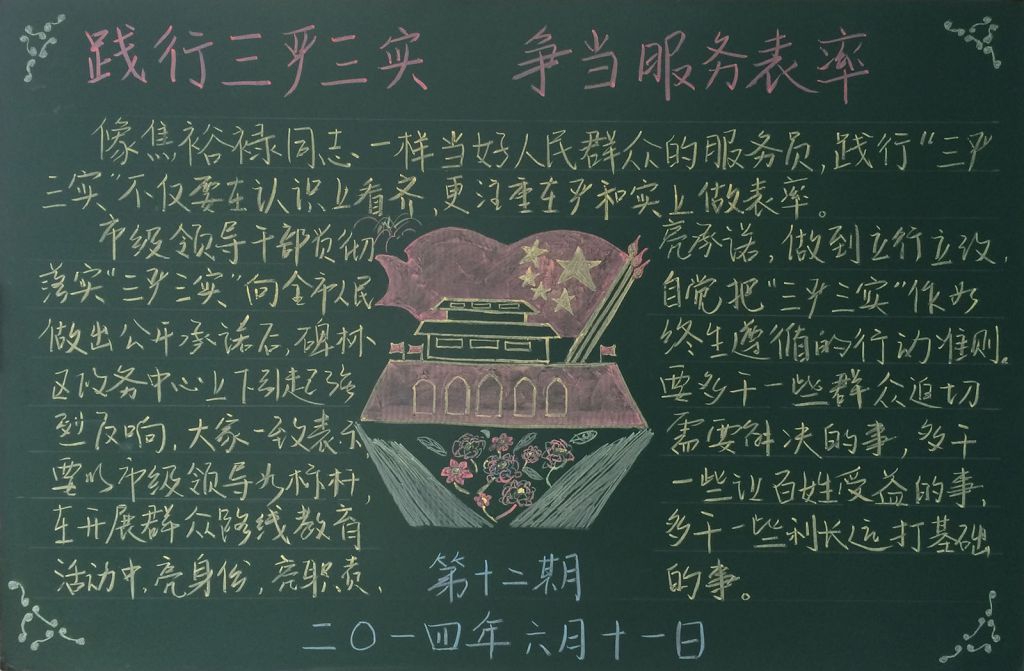 践行三严三实 争当服务表率
像焦裕禄同志一样当好人民群众的服务员,践行“三严
三实”不仅要在认识上看齐,更注重在严和实上做表率。
市级领导干部贯彻
落实“三严三实”向全市人民
做出公开承诺后,碑林
区政务中心上下引起强
烈反响,大家一致表示
要以市级领导为标杆,
在开展群众路线教育
活动中,亮身份,亮职责,
亮承诺,做到立行立改,
自觉把“三严三实”作为
终生遵循的行动准则。
要多干一些群众迫切
需要解决的事,多干
一些让百姓受益的事,
多干一些利长远打基础
的事。
第十二期
二〇一四年六月十一日